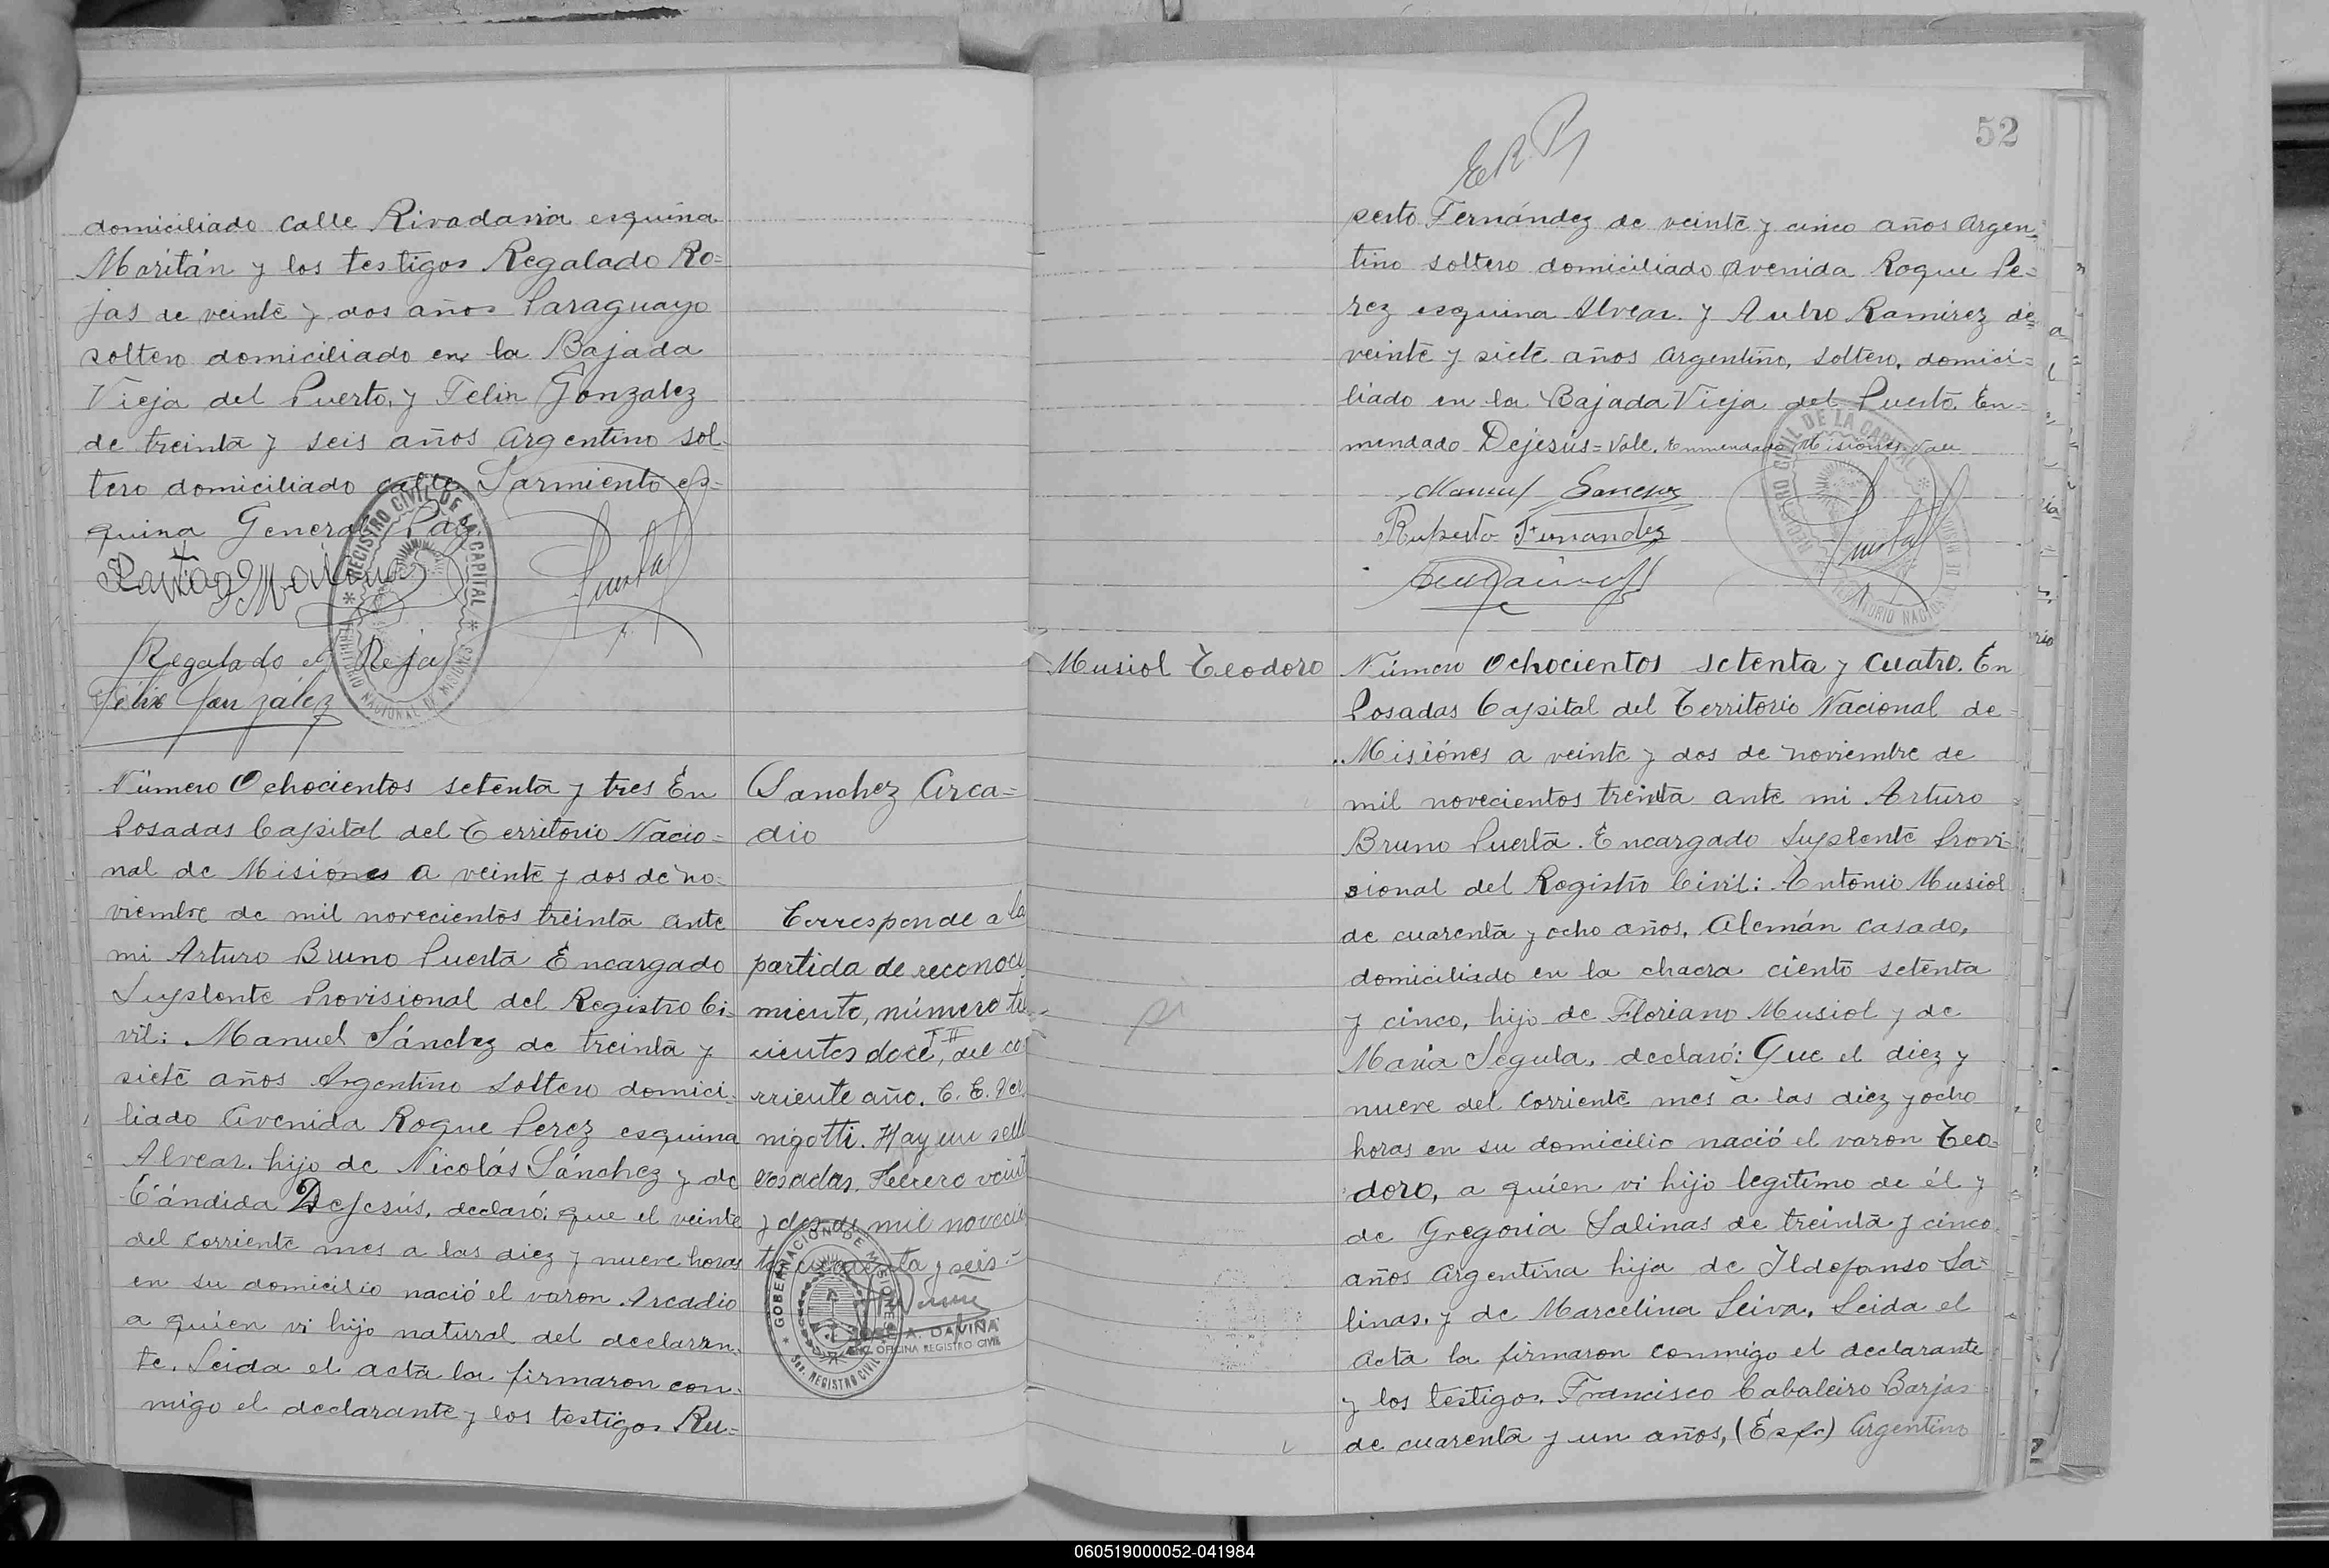 domiciliado calle Rivadavia esquina
Maritán y los testigos Regalado Ro=
jas de veinte y dos años Paraguayo
soltero domiciliado en la Bajada
Vieja del Puerto, y Felix Gonzalez
de treinta y seis años Argentino sol=
tero domiciliado calle Sarmiento es=
quina General Paz
REGISTRO CIVIL DE LA CAPITAL
TERRITORIO NACIONAL DE MISIONES
Regalado Rojas
Félix González
Número Ochocientos setenta y tres En
Posadas Capital del Territorio Nacio=
nal de Misiones a veinte y dos de no=
viembre de mil novecientos treinta ante
mi Arturo Bruno Puerta Encargado
Suplente Provisional del Registro Ci=
vil: Manuel Sánchez de treinta y
siete años Argentino soltero domici=
liado Avenida Roque Perez esquina
Alvear. hijo de Nicolás Sánchez y de
Cándida Dejesús, declaró: que el veinte
del corriente mes a las diez y nueve horas
en su domicilio nació el varon Arcadio
a quien vi hijo natural del declaran=
te. Leida el acta la firmaron con=
migo el declarante y los testigos Ru=
Sanchez Arca=
dio
Corresponde a la
partida de reconoci
miento, número tre
cientos doce, T II del co
rriente año. C. E. Ver
nigotti. Hay un sello
Posadas, Febrero veint
y dos de mil novecie
tos cuarenta y seis.-
GOBERNACIÓN DE MISIONES
Sec. REGISTRO CIVIL
JOSE A. DAVIÑA
ENC. OFICINA REGISTRO CIVIL
52
perto Fernández de veinte y cinco años Argen=
tino soltero domiciliado Avenida Roque Pe=
rez esquina Alvear. y Ramírez de
veinte y siete años Argentino, soltero, domici=
liado en la Bajada Vieja del Puerto. En=
mendado Dejesús=Vale. Enmendado Misiones. Vale
Manuel Sanchez
Ruperto Fernandez
REGISTRO CIVIL DE LA CAPITAL
TERRITORIO NACIONAL DE MISIONES
Musiol Teodoro
Número Ochocientos setenta y cuatro. En
Posadas Capital del Territorio Nacional de
Misiónes a veinte y dos de noviembre de
mil novecientos treinta ante mi Arturo
Bruno Puerta. Encargado Suplente Provi=
sional del Registro Civil: Antonio Musiol
de cuarenta y ocho años, Alemán casado,
domiciliado en la chacra ciento setenta
y cinco, hijo de Floriano Musiol y de
María Segula, declaró: Que el diez y
nueve del corriente mes a las diez y ocho
horas en su domicilio nació el varon Teo=
doro, a quién vi hijo legitimo de él y
de Gregoria Salinas de treinta y cinco
años Argentina hija de Ildefonso Sa=
linas, y de Marcelina Leiva. Leida el
acta la firmaron conmigo el declarante
y los testigos. Francisco Cabaleiro Barjas
de cuarenta y un años, (Espr) Argentino
060519000052-041984